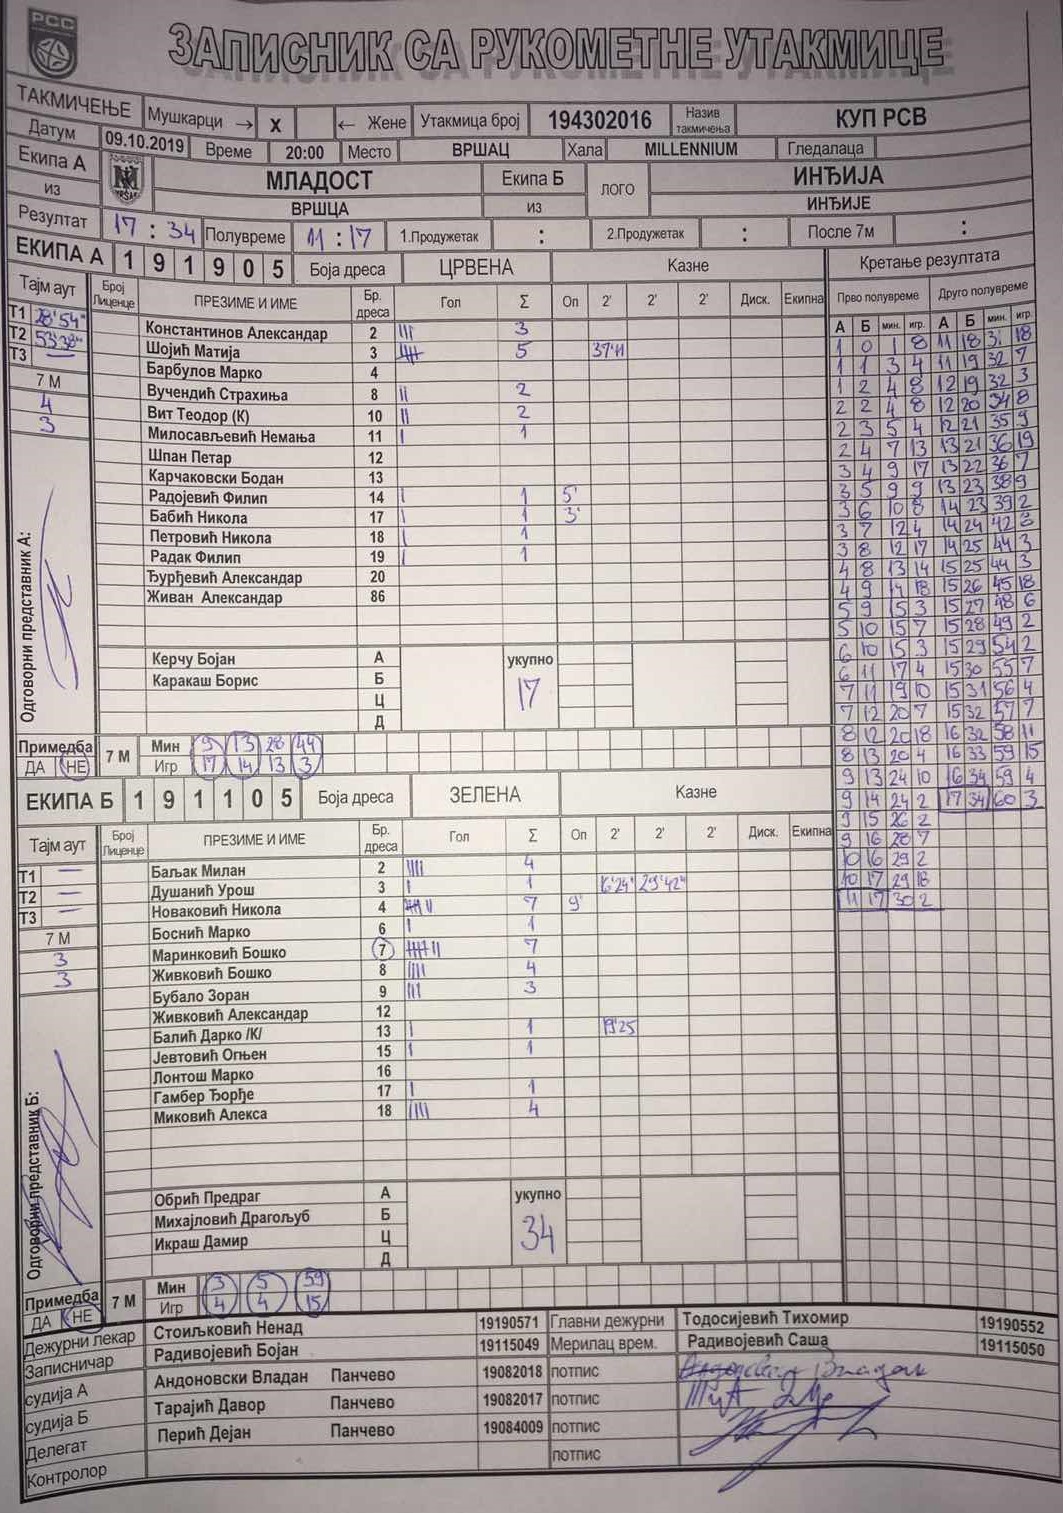 РСС
ЗАПИСНИК СА РУКОМЕТНЕ УТАКМИЦЕ
ТАКМИЧЕЊЕ Мушкарци → X ← Жене Утакмица број 194302016 Назив такмичења КУП РСВ
Датум 09.10.2019 Време 20:00 Место ВРШАЦ Хала MILLENNIUM Гледалаца
Екипа А МЛАДОСТ Екипа Б ЛОГО ИНЂИЈА
из ВРШЦА из ИНЂИЈЕ
Резултат 17 : 34 Полувреме 11 : 17 1.Продужетак : 2.Продужетак : После 7м :
ЕКИПА А 1 9 1 9 0 5 Боја дреса ЦРВЕНА Казне
Тајм аут Број Лиценце ПРЕЗИМЕ И ИМЕ Бр. дреса Гол Σ Оп 2' 2' 2' Диск. Екипна
Т1 28'54"
Т2 53'38"
Т3 —
7 М
4
3
Константинов Александар 2 III 3
Шојић Матија 3 IIIII 5 37'11
Барбулов Марко 4
Вучендић Страхиња 8 II 2
Вит Теодор (К) 10 II 2
Милосављевић Немања 11 I 1
Шпан Петар 12
Карчаковски Бодан 13
Радојевић Филип 14 I 1 5'
Бабић Никола 17 I 1 3'
Петровић Никола 18 I 1
Радак Филип 19 I 1
Ђурђевић Александар 20
Живан Александар 86
Керчу Бојан А укупно
Каракаш Борис Б 17
Ц
Д
Одговорни представник А:
Примедба 7 М Мин 9 13 28 44
ДА НЕ Игр 17 14 13 3
ЕКИПА Б 1 9 1 1 0 5 Боја дреса ЗЕЛЕНА Казне
Тајм аут Број Лиценце ПРЕЗИМЕ И ИМЕ Бр. дреса Гол Σ Оп 2' 2' 2' Диск. Екипна
Т1 —
Т2 —
Т3 —
7 М
3
3
Баљак Милан 2 IIII 4
Душанић Урош 3 I 1 6'24" 29'42"
Новаковић Никола 4 IIIII II 7 9'
Боснић Марко 6 I 1
Маринковић Бошко 7 IIIII II 7
Живковић Бошко 8 IIII 4
Бубало Зоран 9 III 3
Живковић Александар 12
Балић Дарко /К/ 13 I 1 19'25
Јевтовић Огњен 15 I 1
Лонтош Марко 16
Гамбер Ђорђе 17 I 1
Миковић Алекса 18 IIII 4
Обрић Предраг А укупно
Михајловић Драгољуб Б 34
Икраш Дамир Ц
Д
Одговорни представник Б:
Примедба 7 М Мин 3 5 59
ДА НЕ Игр 4 4 15
Кретање резултата
Прво полувреме Друго полувреме
А Б мин. игр. А Б мин. игр.
1 0 1 8 11 18 31 18
1 1 3 4 11 19 32 7
1 2 4 8 12 19 32 3
2 2 4 8 12 20 34 8
2 3 5 4 12 21 35 9
2 4 7 13 13 21 36 19
3 4 9 17 13 22 36 7
3 5 9 9 13 23 38 9
3 6 10 8 14 23 39 2
3 7 12 4 14 24 42 8
3 8 12 17 14 25 44 3
4 8 13 14 15 25 44 3
4 9 14 18 15 26 45 18
5 9 15 3 15 27 48 6
5 10 15 7 15 28 49 2
6 10 15 3 15 29 54 2
6 11 17 4 15 30 55 7
7 11 19 10 15 31 56 4
7 12 20 7 15 32 57 7
8 12 20 18 16 32 58 11
8 13 20 4 16 33 59 15
9 13 24 10 16 34 59 4
9 14 24 2 17 34 60 3
9 15 26 2
9 16 28 7
10 16 29 2
10 17 29 18
11 17 30 2
Дежурни лекар Стоиљковић Ненад 19190571 Главни дежурни Тодосијевић Тихомир 19190552
Записничар Радивојевић Бојан 19115049 Мерилац врем. Радивојевић Саша 19115050
судија А Андоновски Владан Панчево 19082018 потпис
судија Б Тарајић Давор Панчево 19082017 потпис
Делегат Перић Дејан Панчево 19084009 потпис
Контролор потпис